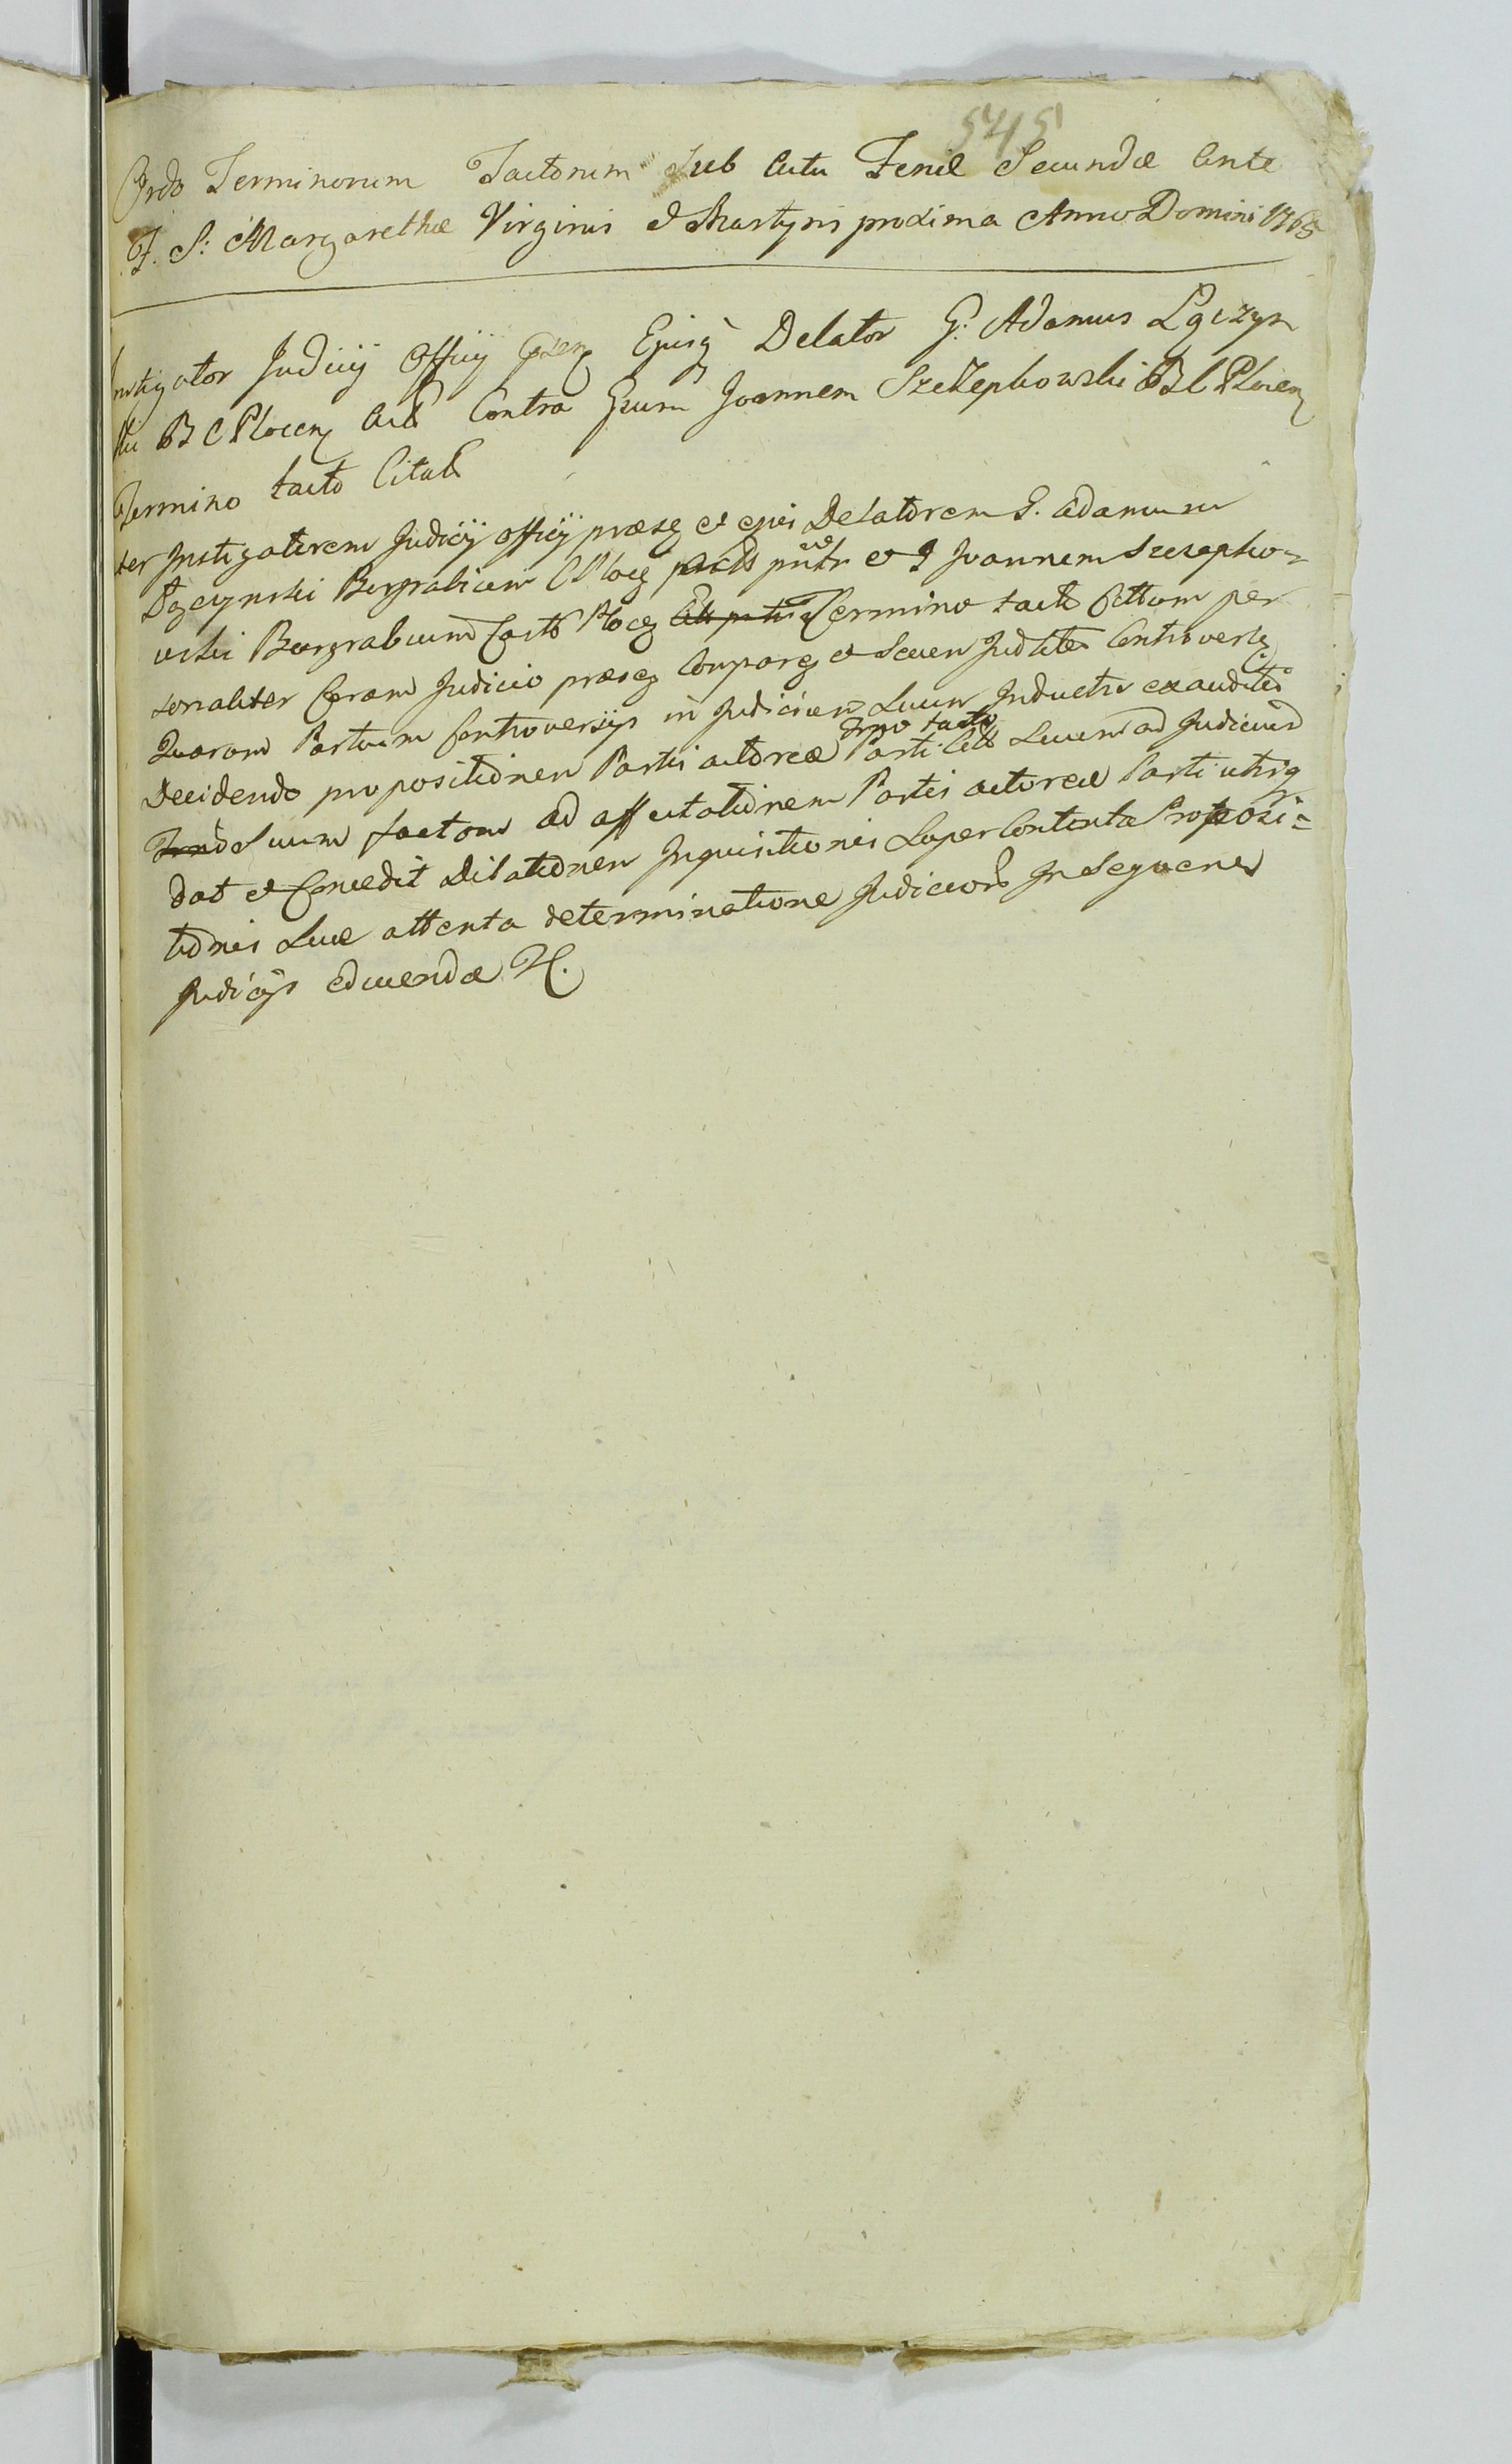 545
Ordo Terminorum Tactorum Sub Actu Feriæ Secundæ Ante
F. S: Margarethæ Virginis et Martyris proxima Anno Domini 1765
Instigator Judicij Officij Ejusq Delator G. Adamus Łączyn
ski B C Plocen Act Contra Gsum Joannem Szczepkowski B C Plocen
Termino tacto Citat
ter Instigatorem Judicij Officij præsen et ejus Delatorem G. Adamum
Łączynski Burgrabium C Ploc et G Joannem Szczepko-
wski Burgrabium Castr Ploc Termino tacto Cittum per
sonaliter Coram Judicio præsen Comparen et Seuen Judtter Controverten
Quarum Partium Controversijs in Judicium Suum Inductis exauditis
Decidendo propositionem Partis actoreæ Trno tacto Parti Citt Suum ad Judicium
Suum factam ad affectationem Partis actoreæ Parti utriq
dat et Concedit Dilationem Inquisitionis Super Contenta Proposi=
tionis Suæ attenta determinatione Judiciorum In Sequenes
Judicijs educendæ